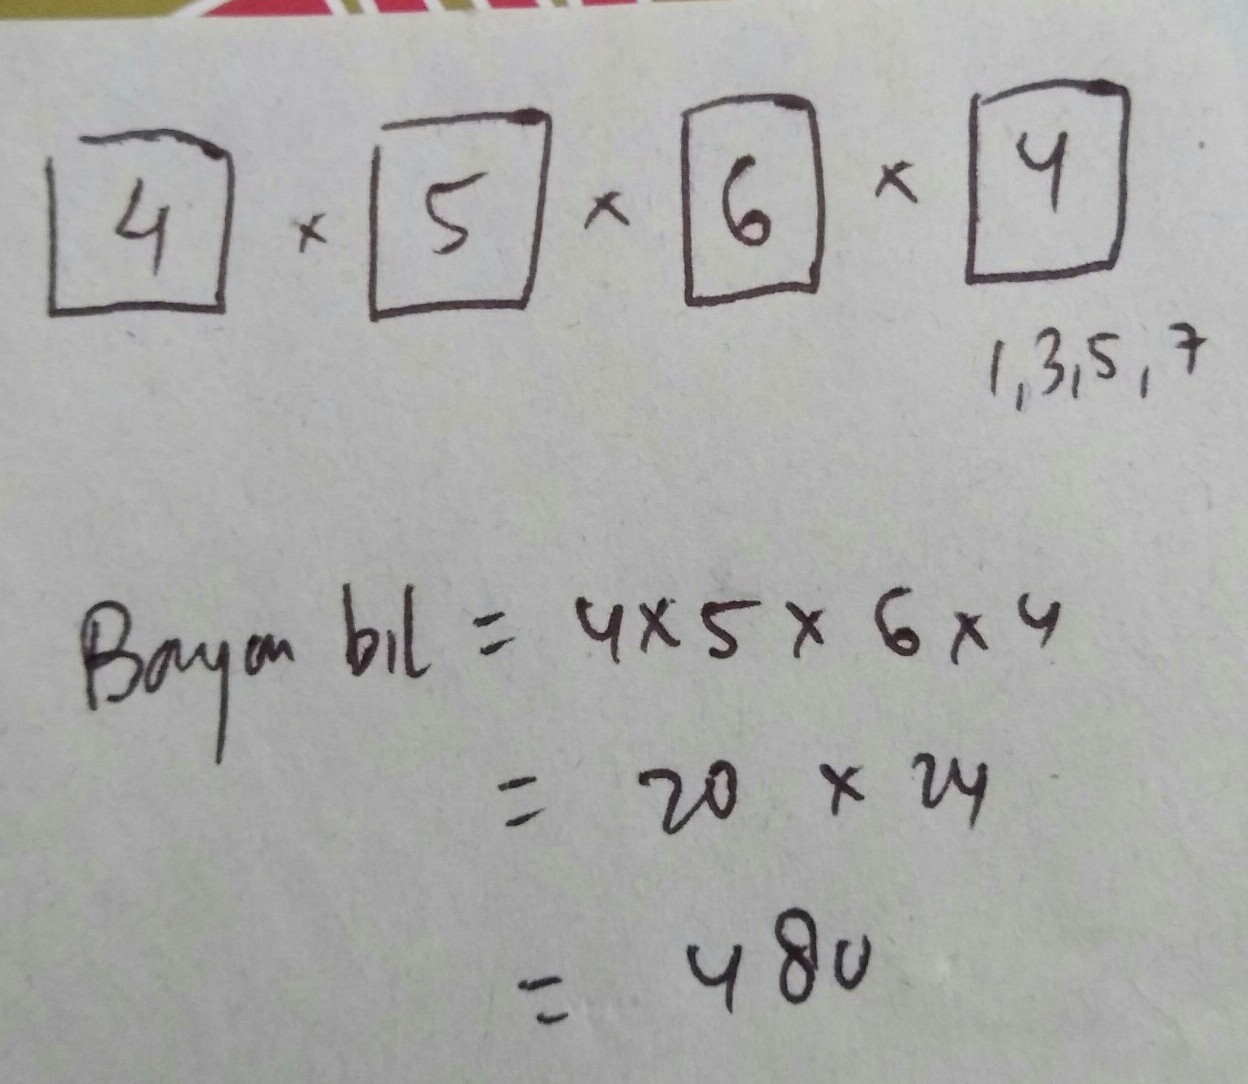 4 × 5 × 6 × 4
1,3,5,7
Banyan bil = 4 × 5 × 6 × 4
= 20 × 24
= 480